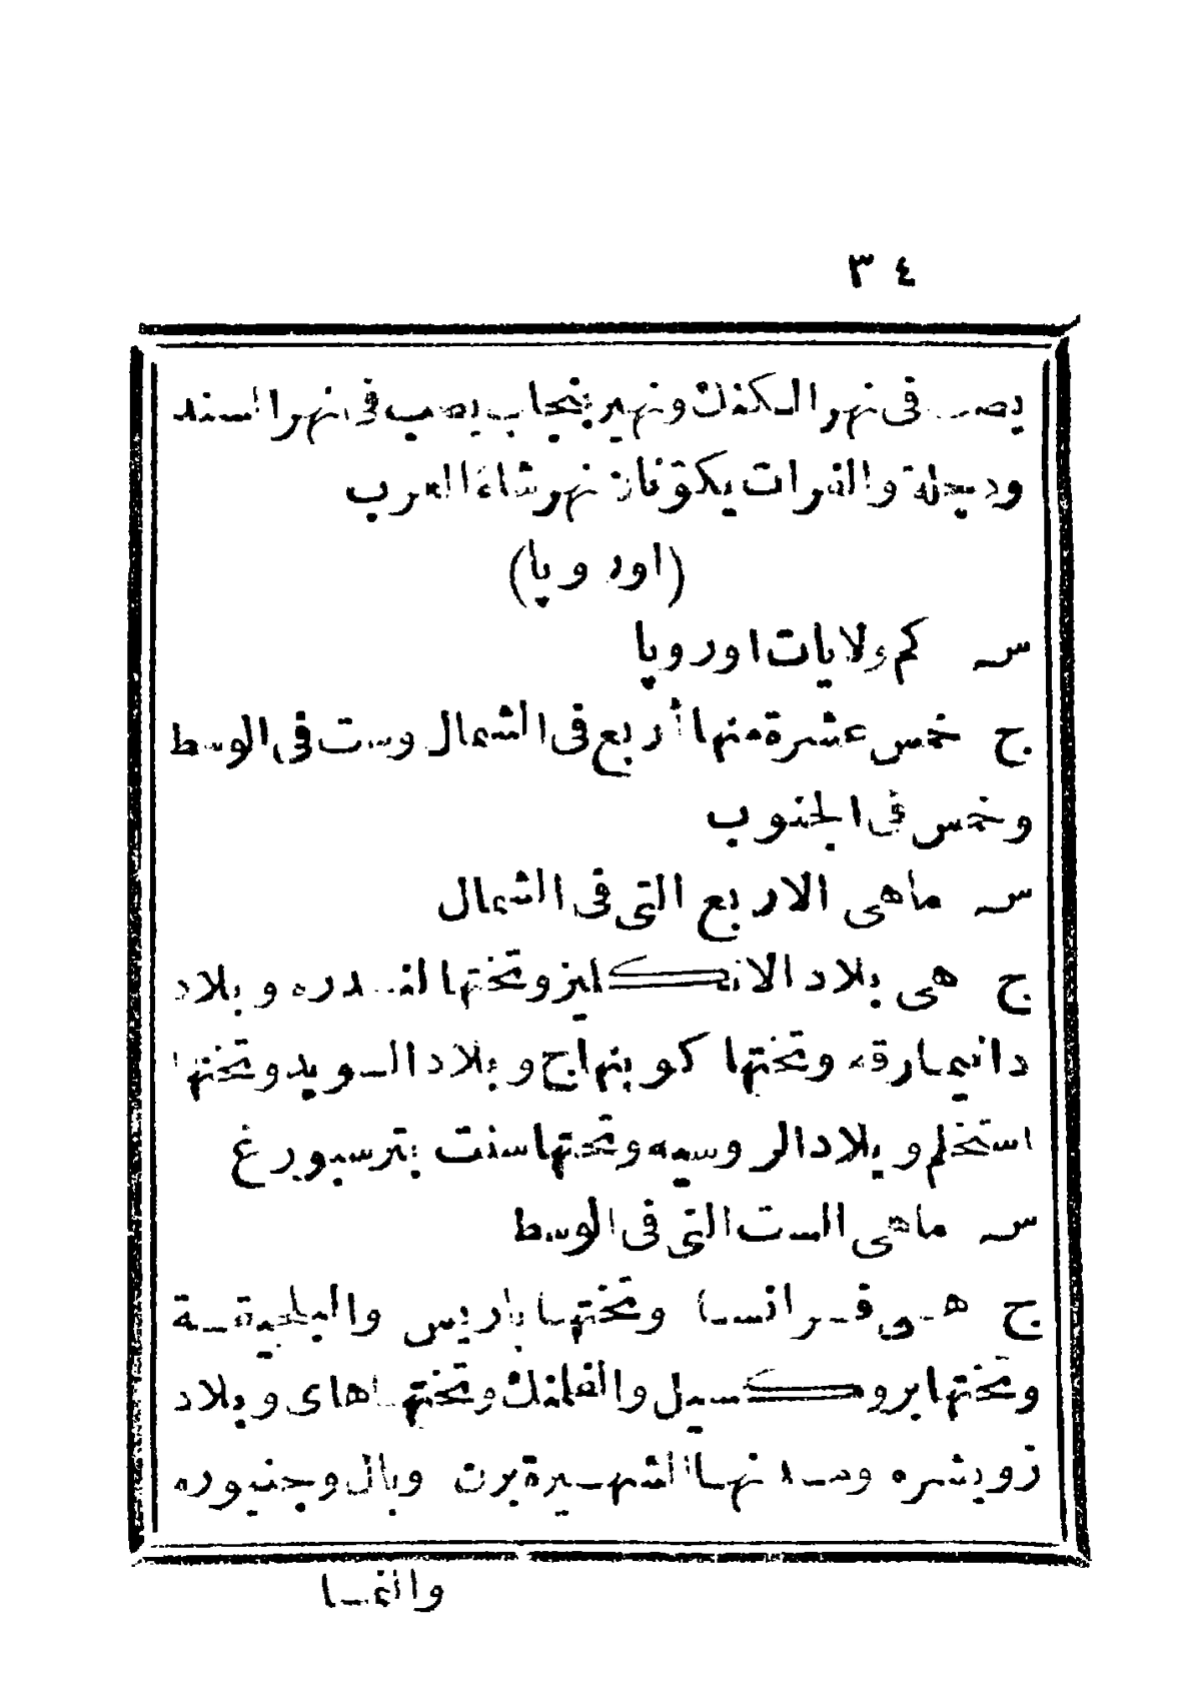 ٣٤
يصب فى نهر الكنك ونهير بنجاب يصب فى نهر السند
ودجلة والفرات يكوّنان نهر شاء العرب
(اوروپا)
سـ كم ولايات اوروپا
ج خمس عشرة منها أربع فى الشمال وست فى الوسط
وخمس فى الجنوب
سـ ماهى الاربع التى فى الشمال
ج هى بلاد الانكليز وتختها لندره وبلاد
دانيمارقه وتختها كوبنهاج وبلاد السويد وتختها
استخلم وبلاد الروسيه وتختها سنت بترسبورغ
سـ ماهى الست التى فى الوسط
ج هى فرانسا وتختها باريس والبلجيقة
وتختها بروكسيل والفلمنك وتختها هاى وبلاد
زويشره ومدنها الشهيرة برن وبال وجنيوره
والنمسا